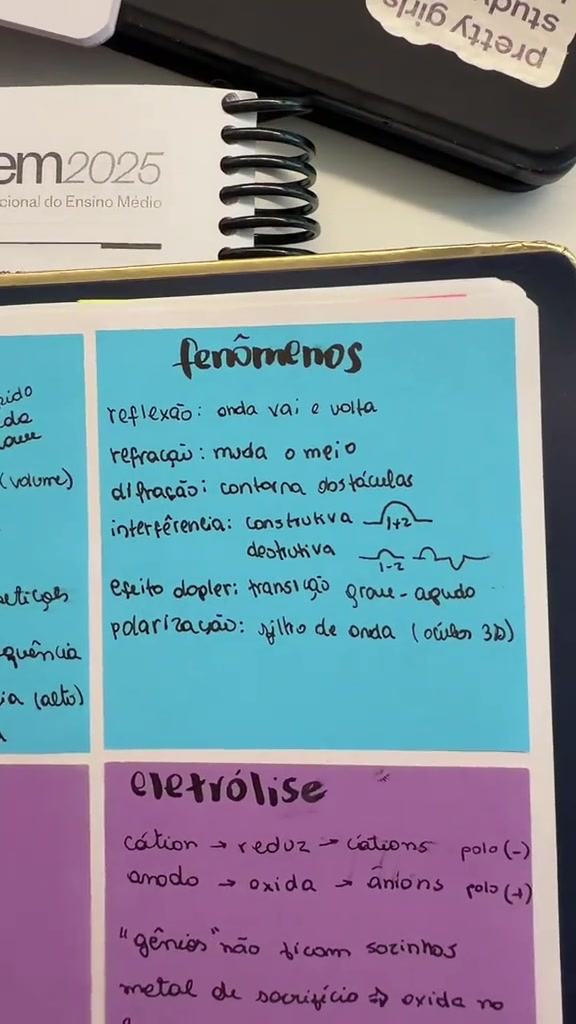 study
pretty girls
em2025
cional do Ensino Médio
(volume)
quência
ia (alto)
fenômenos
reflexão: onda vai e volta
refração: muda o meio
difração: contorna obstáculos
interfêrencia: construtiva 1+2
destrutiva 1-2
efeito dopler: transição grave-agudo
polarização: filho de onda (óculos 3D)
eletrólise
cátion → reduz → cátions polo (-)
anodo → oxida → ânions polo (+)
"gênios" não ficam sozinhos
metal de sacrifício → oxida no